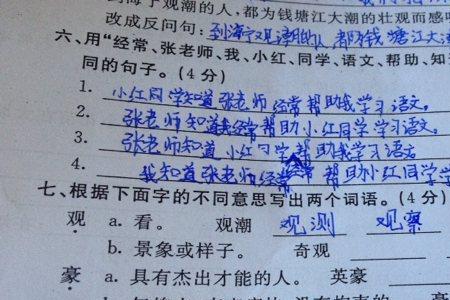 到海宁观潮的人,都为钱塘江大潮的壮观而感
改成反问句: 到海宁观潮的人 都为钱塘江大
六、用“经常、张老师、我、小红、同学、语文、帮助、知
同的句子。(4分)
1. 小红同学知道张老师经常帮助我学习语文。
2. 张老师知道我经常帮助小红同学学习语文。
3. 张老师知道小红同学经常帮助我学习语文
4. 我知道张老师经常帮助小红同学学
七、根据下面字的不同意思写出两个词语。(4分)
观 a. 看。 观潮 观测 观察
b. 景象或样子。 奇观
豪 a. 具有杰出才能的人。 英豪